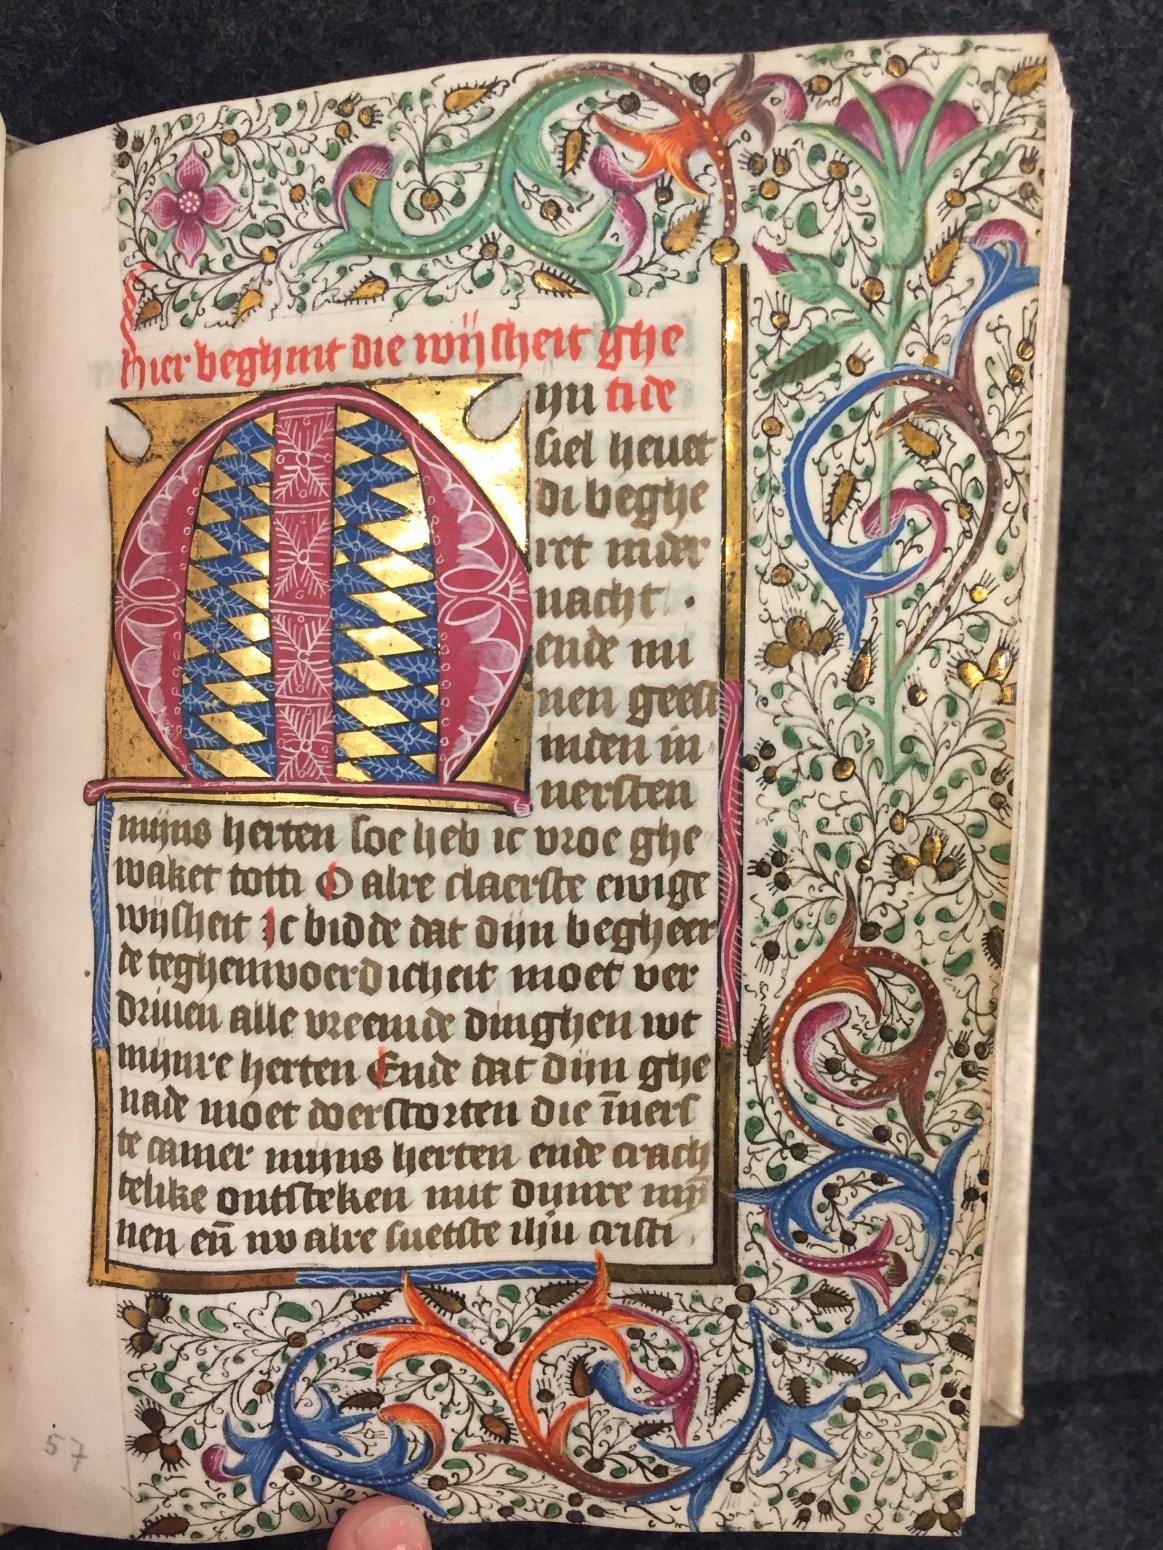 hier beghint die wijsheit ghe
tide
Mijn
siel heuet
di beghe
ret inder
nacht .
ende mi
nen geest
inden in
nersten
mijns herten soe heb ic vroe ghe
waket totti O alre claerste ewige
wijsheit Ic bidde dat dijn begheer
de teghenwoerdicheit moet ver
driuen alle vreemde dinghen wt
mijnre herten Ende dat dijn ghe
nade moet doerstorten die īners
te camer mijns herten ende crach
telike ontsteken mit dijnre mȳ
nen eñ nv alre suetste ihu cristi
57